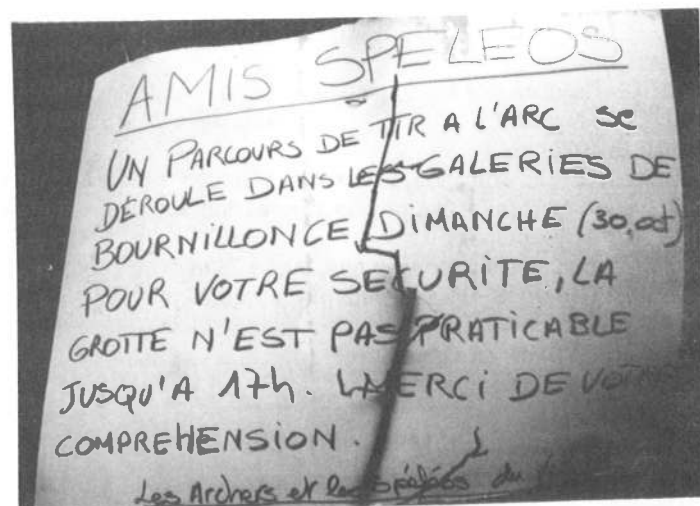 AMIS SPELEOS
UN PARCOURS DE TIR A L'ARC se
DÉROULE DANS LES GALERIES DE
BOURNILLON CE DIMANCHE (30, oct)
POUR VOTRE SECURITE, LA
GROTTE N'EST PAS PRATICABLE
JUSQU'A 17h. MERCI DE VOTRE
COMPREHENSION.
Les Archers et les spéléos du